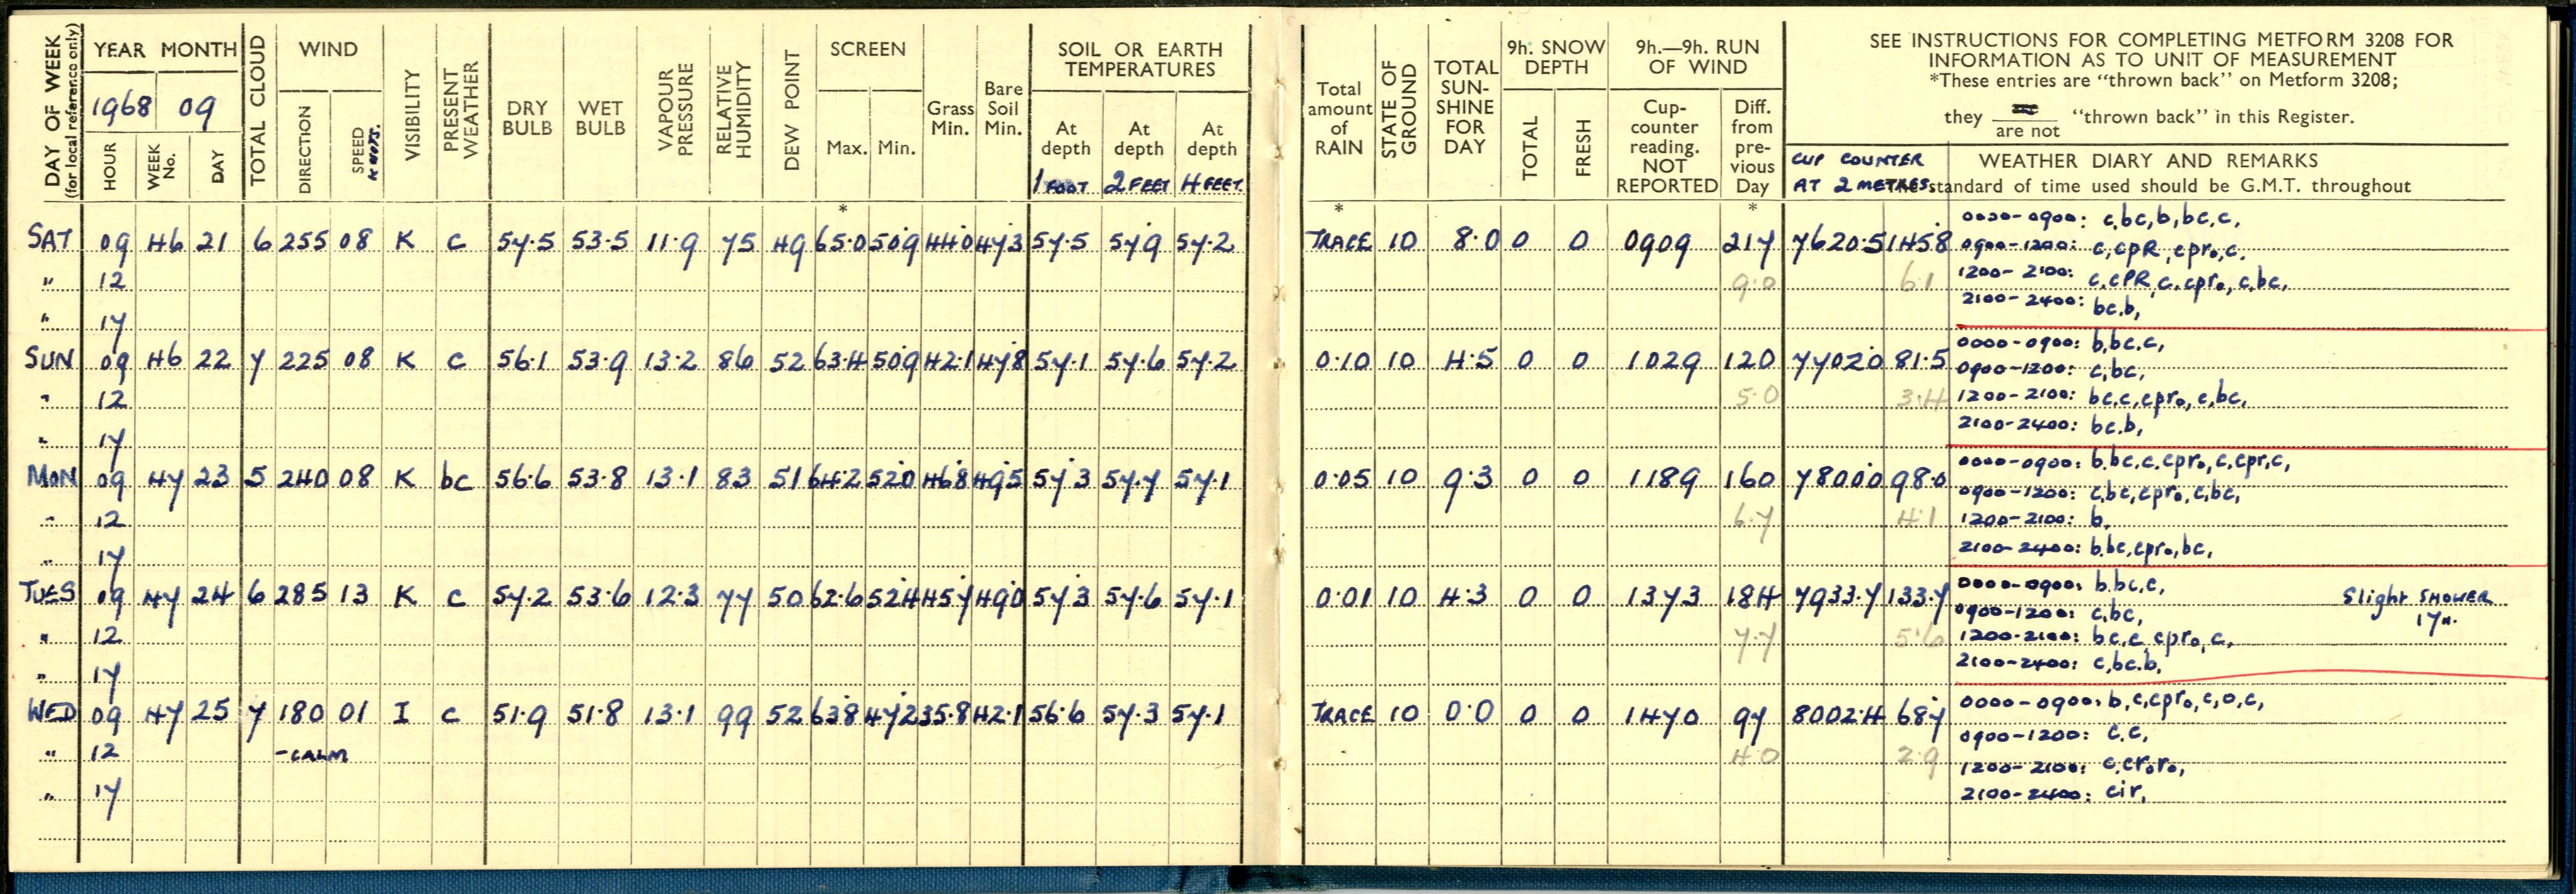 DAY OF WEEK (for local reference only)
YEAR MONTH
1968 09
HOUR
WEEK No.
DAY
TOTAL CLOUD
WIND
DIRECTION
SPEED KNOTS.
VISIBILITY
PRESENT WEATHER
DRY BULB
WET BULB
VAPOUR PRESSURE
RELATIVE HUMIDITY
DEW POINT
SCREEN
Max. Min.
*
Grass Min.
Bare Soil Min.
SOIL OR EARTH TEMPERATURES
At depth 1 FOOT
At depth 2 FEET
At depth 4 FEET
Total amount of RAIN
*
STATE OF GROUND
TOTAL SUN-SHINE FOR DAY
9h. SNOW DEPTH
TOTAL
FRESH
9h.—9h. RUN OF WIND
Cup-counter reading. NOT REPORTED
Diff. from pre-vious Day
*
SEE INSTRUCTIONS FOR COMPLETING METFORM 3208 FOR
INFORMATION AS TO UNIT OF MEASUREMENT
*These entries are "thrown back" on Metform 3208;
they are not "thrown back" in this Register.
CUP COUNTER
AT 2 METRES.
WEATHER DIARY AND REMARKS
standard of time used should be G.M.T. throughout
SAT 09 46 21 6 255 08 K c 57.5 53.5 11.9 75 49 65.0 50.9 44.0 47.3 57.5 57.9 57.2 TRACE 10 8.0 0 0 0909 217 7620.5 145.8
0000-0900: c,bc,b,bc,c,
0900-1200: c,cpR,cpr₀,c.
" 12 9.0 6.1
1200-2100: c.cPR,c.cpr₀,c,bc,
2100-2400: bc.b,
" 17
SUN 09 46 22 7 225 08 K c 56.1 53.9 13.2 86 52 63.4 50.9 42.1 47.8 57.1 57.6 57.2 0.10 10 4.5 0 0 1029 120 7702.0 81.5
0000-0900: b,bc.c,
0900-1200: c,bc,
" 12 5.0 3.4
1200-2100: bc,c,cpr₀,c,bc,
2100-2400: bc.b,
" 17
MON 09 47 23 5 240 08 K bc 56.6 53.8 13.1 83 51 64.2 52.0 46.8 49.5 57.3 57.7 57.1 0.05 10 9.3 0 0 1189 160 7800.0 98.0
0000-0900: b.bc,c.cpr₀,c,cpr,c,
0900-1200: c,bc,cpr₀,c,bc,
" 12 6.7 4.1
1200-2100: b,
2100-2400: b.bc,cpr₀,bc,
" 17
TUES 09 47 24 6 285 13 K c 57.2 53.6 12.3 77 50 62.6 52.4 45.7 49.0 57.3 57.6 57.1 0.01 10 4.3 0 0 1373 184 7933.7 133.7
0000-0900: b.bc.c,
0900-1200: c,bc,
Slight SHOWER
17h.
" 12 7.7 5.6
1200-2100: bc,c,cpr₀,c,
2100-2400: c,bc.b,
" 17
WED 09 47 25 7 180 01 I c 51.9 51.8 13.1 99 52 63.8 47.2 35.8 42.1 56.6 57.3 57.1 TRACE 10 0.0 0 0 1470 97 8002.4 68.7
0000-0900: b,c,cpr₀,c,o,c,
0900-1200: c.c,
" 12 -CALM 4.0 2.9
1200-2100: c,cr₀r₀,
2100-2400: cir,
" 17